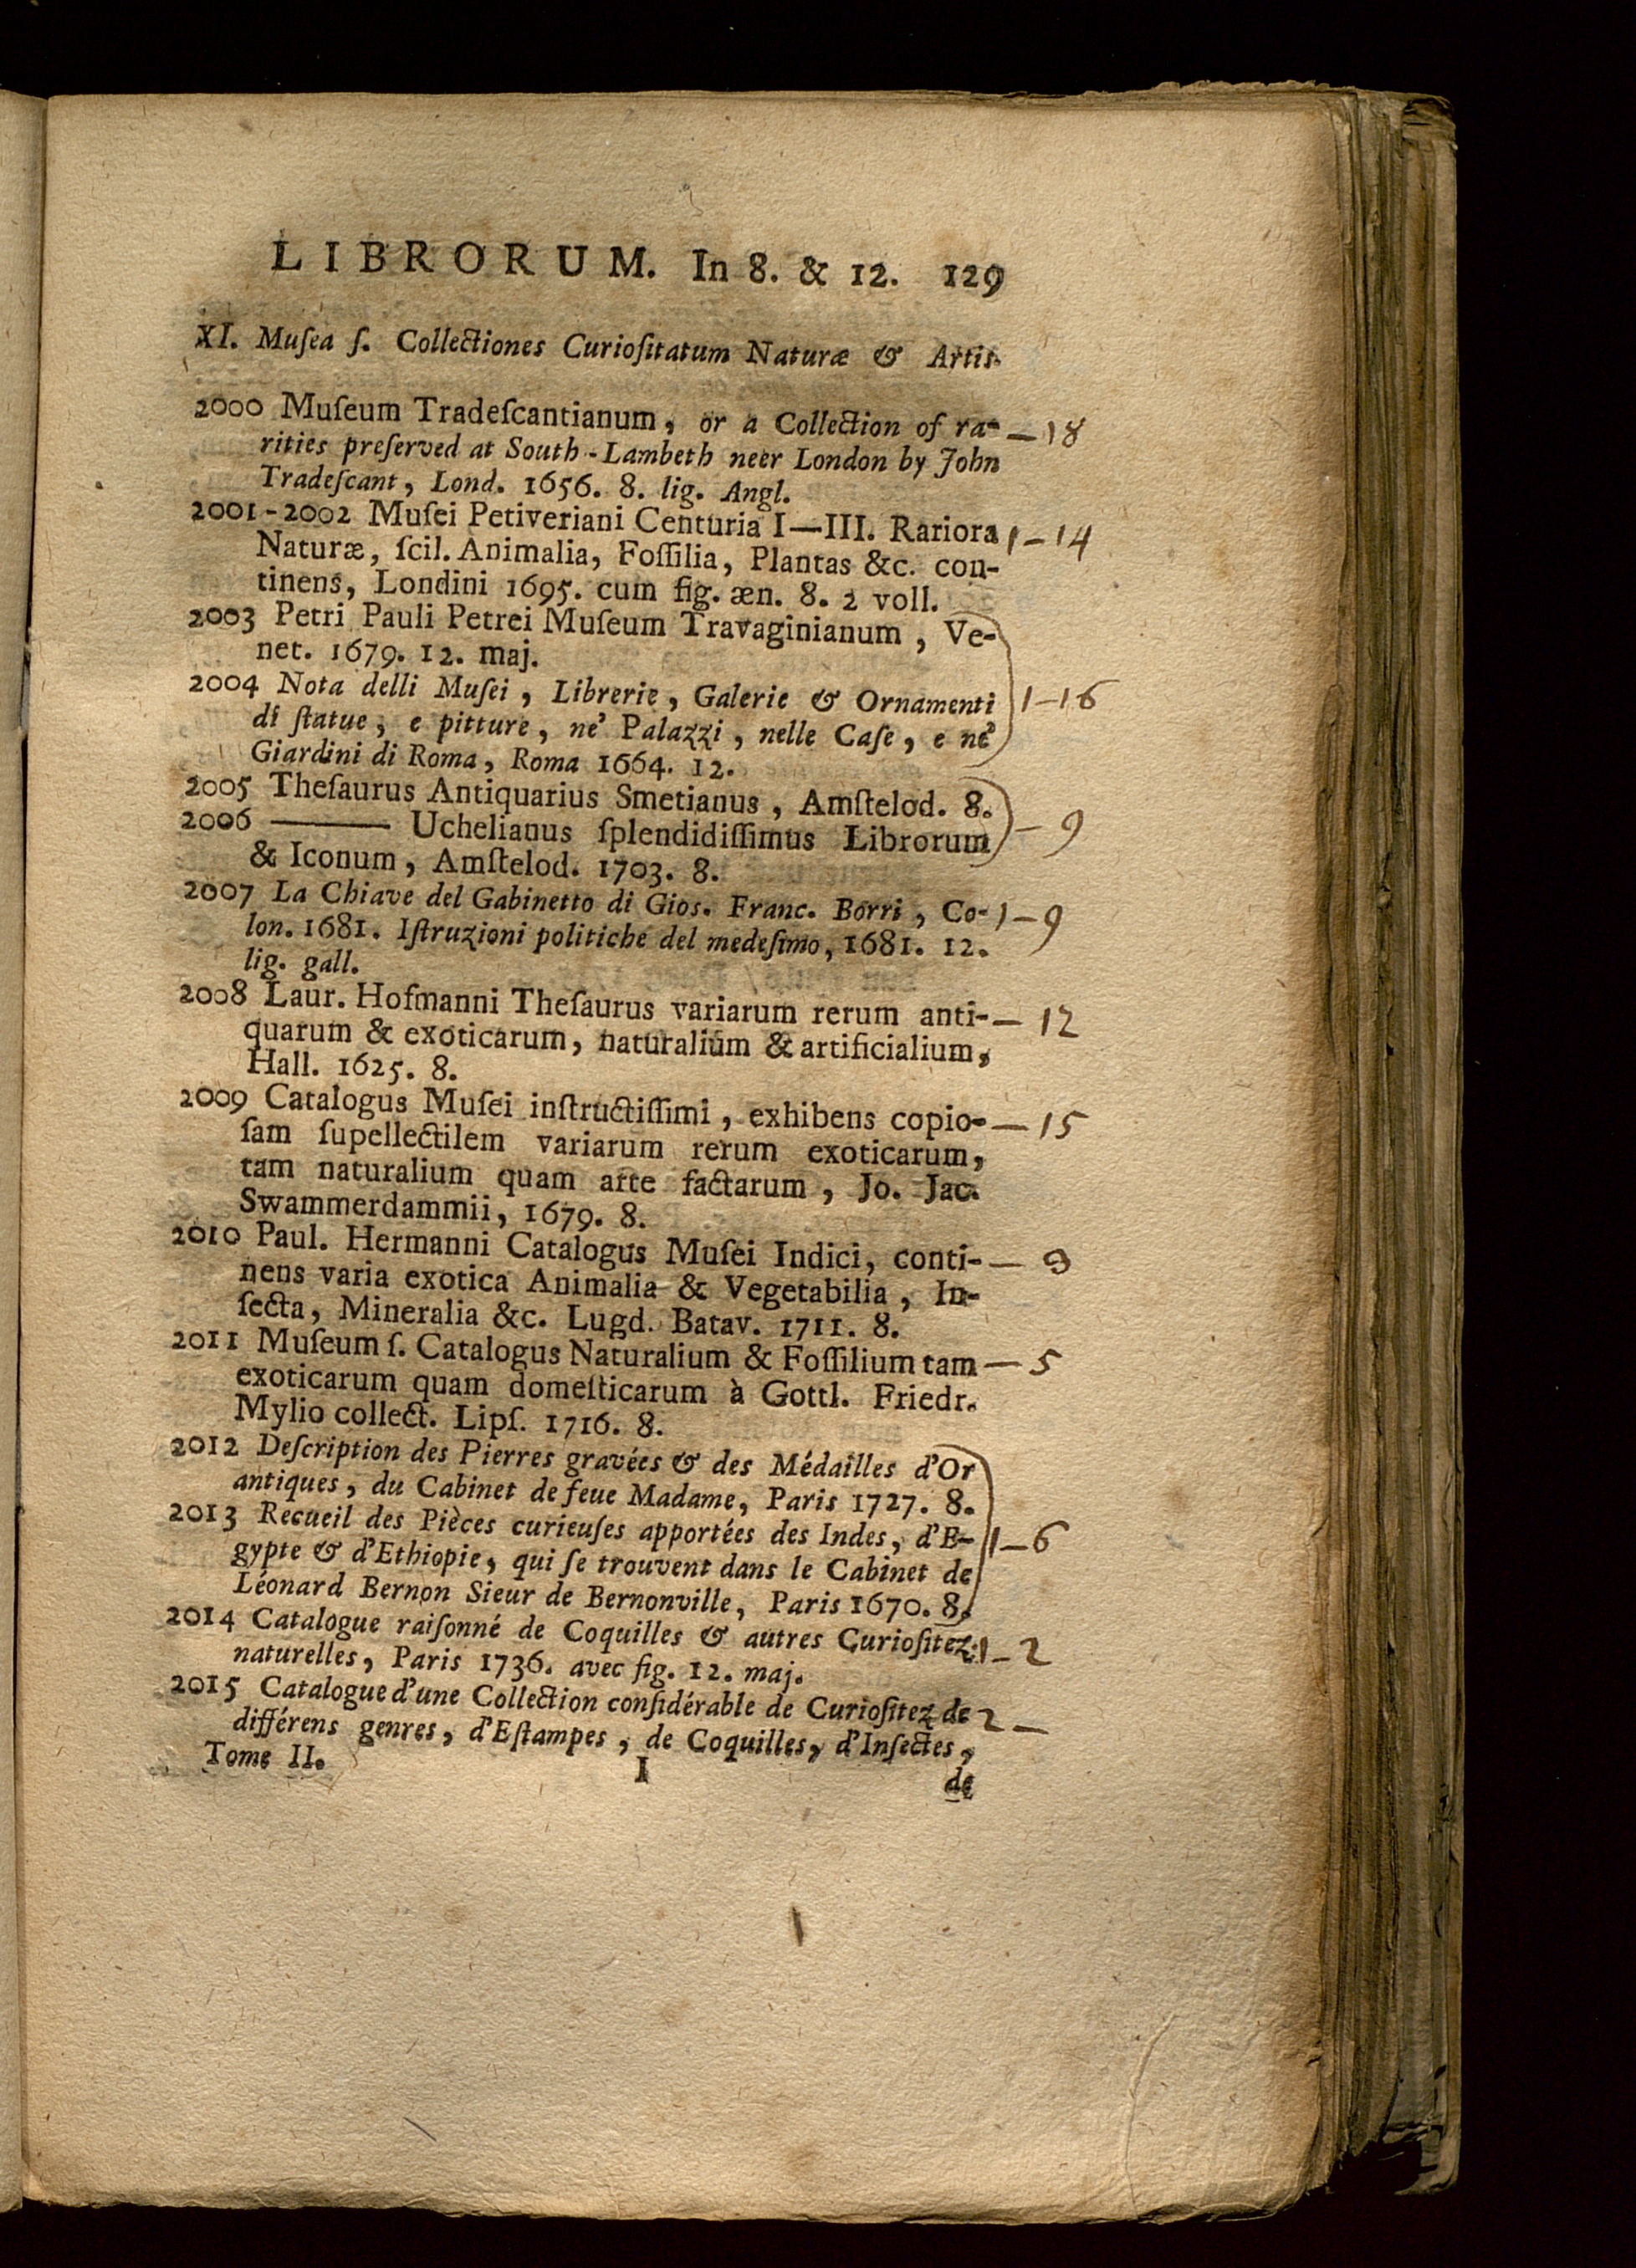 LIBRORUM. In 8. & 12. 129
XI. Muſea ſ. Collectiones Curioſitatum Naturæ & Artis.
2000 Muſeum Tradeſcantianum, or a Collection of ra- — 18
rities preſerved at South-Lambeth neer London by John
Tradeſcant, Lond. 1656. 8. lig. Angl.
2001-2002 Muſei Petiveriani Centuria I—III. Rariora 1 — 14
Naturæ, ſcil. Animalia, Foſſilia, Plantas &c. con-
tinens, Londini 1695. cum fig. æn. 8. 2 voll.
2003 Petri Pauli Petrei Muſeum Travaginianum, Ve-
net. 1679. 12. maj.
2004 Nota delli Muſei, Librerie, Galerie & Ornamenti 1 — 16
di ſtatue, e pitture, ne' Palazzi, nelle Caſe, e ne'
Giardini di Roma, Roma 1664. 12.
2005 Theſaurus Antiquarius Smetianus, Amſtelod. 8.
2006 ——— Uchelianus ſplendidiſſimus Librorum — 9
& Iconum, Amſtelod. 1703. 8.
2007 La Chiave del Gabinetto di Gios. Franc. Borri, Co- 1 — 9
lon. 1681. Iſtruzioni politiche del medeſimo, 1681. 12.
lig. gall.
2008 Laur. Hofmanni Theſaurus variarum rerum anti- — 12
quarum & exoticarum, naturalium & artificialium,
Hall. 1625. 8.
2009 Catalogus Muſei inſtructiſſimi, exhibens copio- — 15
ſam ſupellectilem variarum rerum exoticarum,
tam naturalium quam arte factarum, Jo. Jac.
Swammerdammii, 1679. 8.
2010 Paul. Hermanni Catalogus Muſei Indici, conti- — 9
nens varia exotica Animalia & Vegetabilia, In-
ſecta, Mineralia &c. Lugd. Batav. 1711. 8.
2011 Muſeum ſ. Catalogus Naturalium & Foſſilium tam — 5
exoticarum quam domeſticarum à Gottl. Friedr.
Mylio collect. Lipſ. 1716. 8.
2012 Deſcription des Pierres gravées & des Médailles d'Or
antiques, du Cabinet de feue Madame, Paris 1727. 8.
2013 Recueil des Pièces curieuſes apportées des Indes, d'E- 1 — 6
gypte & d'Ethiopie, qui ſe trouvent dans le Cabinet de
Léonard Bernon Sieur de Bernonville, Paris 1670. 8.
2014 Catalogue raiſonné de Coquilles & autres Curioſitez 1 — 2
naturelles, Paris 1736. avec fig. 12. maj.
2015 Catalogue d'une Collection conſidérable de Curioſitez de 2 —
différens genres, d'Eſtampes, de Coquilles, d'Inſectes,
Tome II. I de